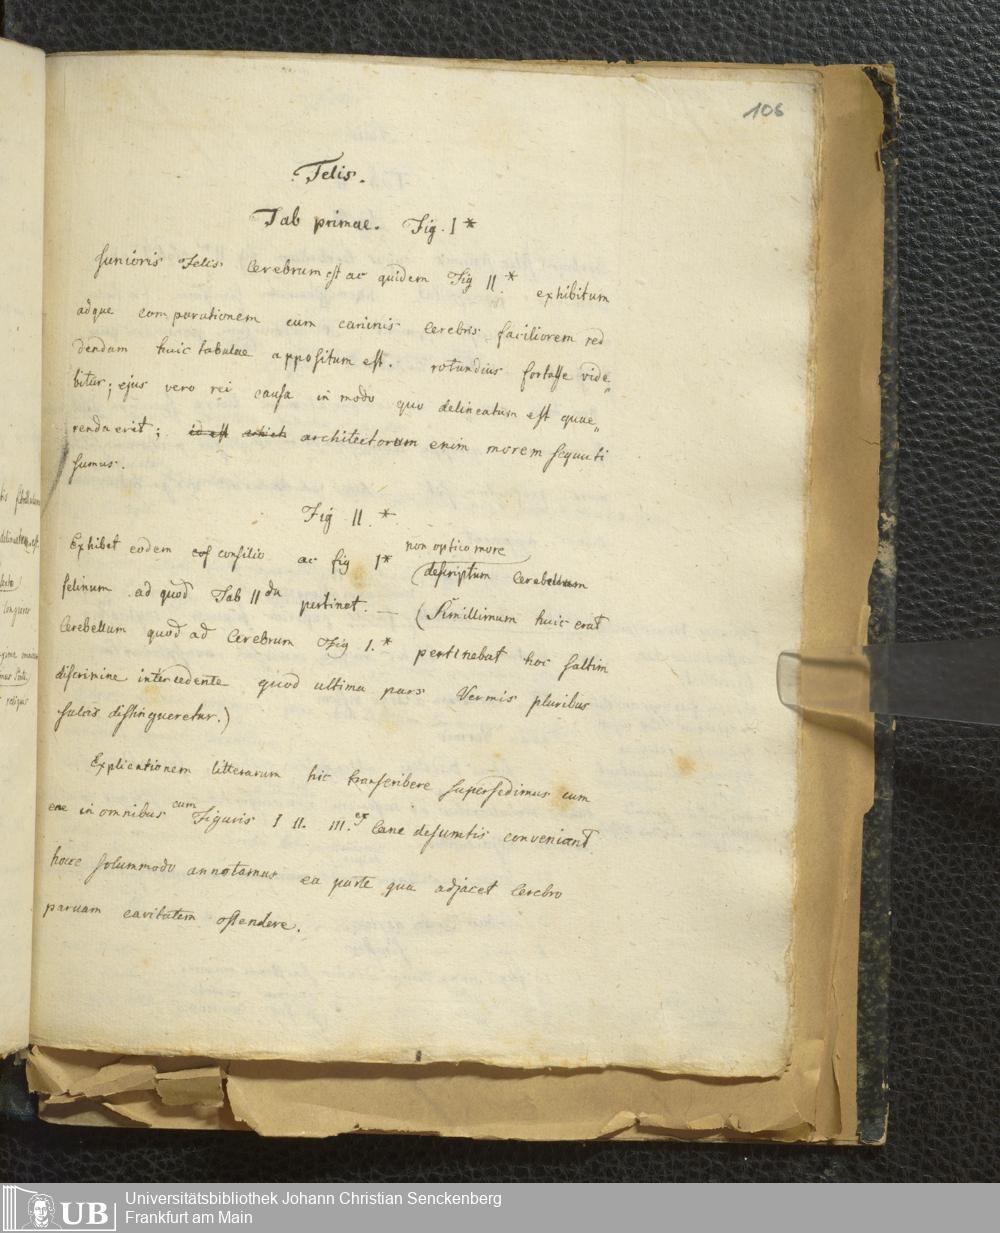 106
Felis.
Tab primae. Fig. I *
Junioris Felis Cerebrum est ac quidem Fig II.* exhibitum
adque comparationem cum caninis cerebris faciliorem red
dendam huic tabulae appositum est. rotundius fortasse vide„
bitur; ejus vero rei causa in modo quo delineatum est quae„
renda erit; id est archit architectorum enim morem sequuti
sumus.
Fig II.*
non optico more
Exhibet eodem consilio ac fig I* (descriptum Cerebellum
felinum ad quod Tab II da pertinet. — (Simillimum huic erat
Cerebellum quod ad Cerebrum Fig I.* pertinebat hoc saltim
discrimine intercedente quod ultima pars Vermis pluribus
sulcis distingueretur.)
Explicationem litterarum hic transcribere supersedimus cum
eae in omnibus cum Figuris I II. III. ex Cane desumtis conveniant
hocce solummodo annotamus ea parte qua adjacet Cerebro
parvam cavitatem ostendere.
UB
Universitätsbibliothek Johann Christian Senckenberg
Frankfurt am Main